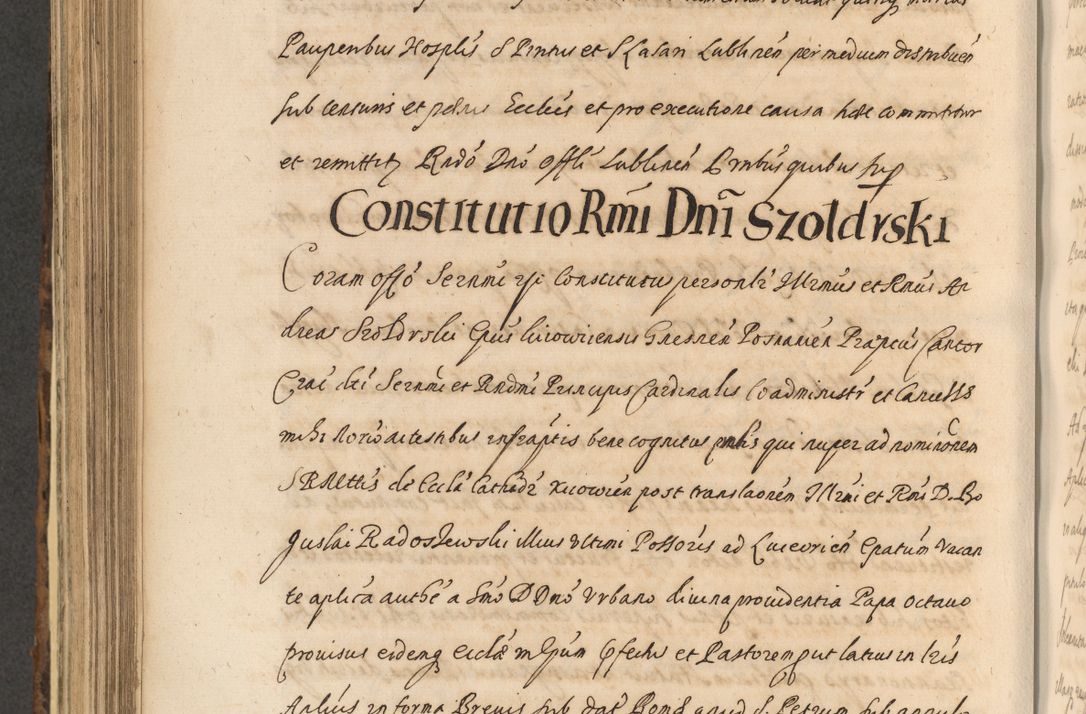 Pauperibus Hosplis S Pintus et S Lasari Lublinen per medium distribuen
sub censuris et penis Ecclis et pro executione causa hac committitur
et remittitz Rndo Dno Offli Lublinen Pntbus quibus sup
Constitutio Rmi Dni Szoldrski
Coram offo Sernmi rpi Constitutus personlr Illrmus et Rmus An
dreas Szoldrski Epus kiiowiensis Gnesnen Posnanien Praptus Cantor
Crac dti Sernmi et Rndmi Principis Cardinalis Coadministr et Cancells
mihi Norio ac testibus infraptis bene cognitus pntis qui nuper ad nominonem
S R Mttis de Eccla Cathedr Kiiowien post translaonem Illrmi et Rmi D. Bo
guslai Radoszewski illius ultimi Possoris ad Luceorien Epatum vacan
te aplica authe a Smo D Dno Urbano divina providentia Papa octavo
provisus eidemq Eccle in Epum Pfectus et Pastorem put latius in lris
Aplius in forma Brevis sub dat Rome apud S. Petrum sub annulo